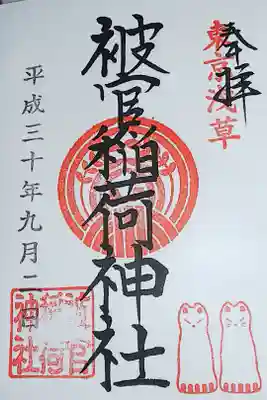 奉拝
東京浅草
被官稲荷神社
平成三十年九月二日
被官
稲荷
神社